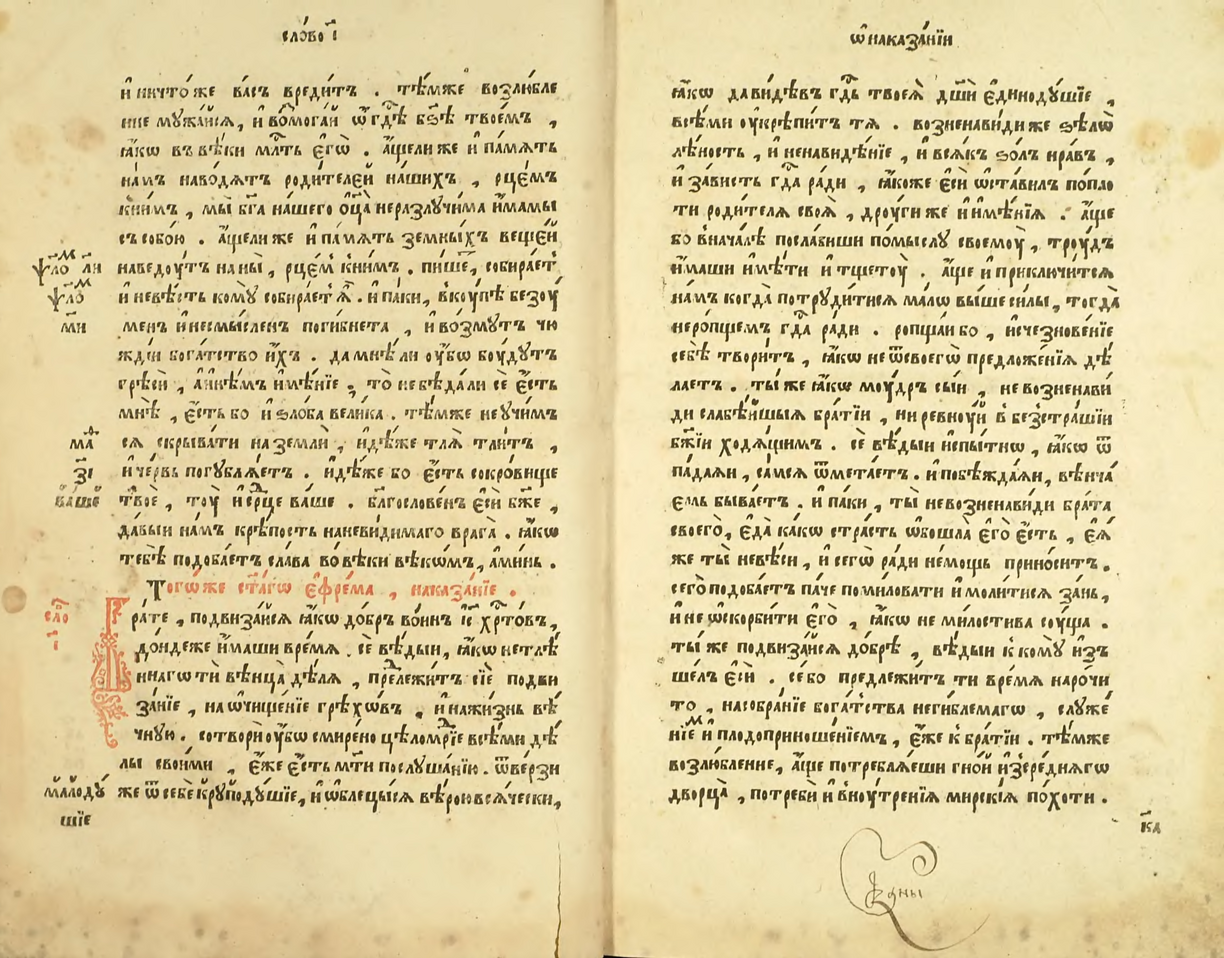 сло́во і҃
и҆ ничто́же ва́съ вреди́тъ . тѣ́мже возлю́бле
нне мꙋжа́йсѧ, и҆ во́ могай ѿ гдѣ̀ бз҃ѣ твое́мъ ,
ꙗ҆́кѡ въ вѣ́ки млⷭ҇ть є҆гѡ̀ . а҆́щели же и҆ па́мѧть
на́мъ наводѧ́тъ роди́телей на́шихъ , рце́мъ
кни́мъ , мы̀ бг҃а на́шего ѻц҃а̀ неразлꙋчи́ма и҆́мамы
съ собо́ю . а҆́щели же и҆ па́мѧть земны́хъ веще́й
ѱло́ м ли наведꙋ́тъ на ны̀ , рце́м кни́мъ . пи́ше, собира́етъ
ѱло́ м и҆ невѣ́сть комꙋ̀ собира́етъ ѧ҆̀ . и҆ па́ки, вкꙋ́пѣ безꙋ́
м҃и менъ и҆ несмы́сленъ поги́бнета , и҆ во́змꙋтъ чю
жді́и бога́тство и҆́хъ . да мнѣ́ ли ᲂу҆́бѡ бꙋ́дꙋтъ
грѣсѝ , а҆ и҆нѣ́мъ и҆мѣ́нїе , то̀ не бѣда́ ли сѐ є҆́сть
мнѣ̀ , є҆́сть бо и҆ ѕло́ба вели́ка . тѣ́мже не ᲂу҆чи́мъ
маѳ сѧ̀ скрыва́ти на землѝ , и҆дѣ́же тлѧ̀ тли́тъ ,
з҃і и҆ че́рвь погꙋблѧ́етъ . и҆дѣ́же бо є҆́сть сокро́вище
ва́ше твоѐ , тꙋ̀ и҆ се́рⷣце ва́ше . бл҃гослове́нъ є҆сѝ бж҃е ,
да́выи на́мъ крѣ́пость на неви́димаго врага̀ . ꙗ҆́кѡ
тебѣ̀ подоба́етъ сла́ва во вѣ́ки вѣкѡ́мъ , а҆ми́нь .
Тогѡ́же ст҃а́гѡ є҆фре́ма , наказа́нїе .
сло́ Бра́те , подвиза́йсѧ ꙗ҆́кѡ до́бръ во́инъ і҆с҃ хрⷭ҇то́въ ,
і҃ до́ндеже и҆́маши вре́мѧ . сѐ вѣ́дыи, ꙗ҆́кѡ нетлѣ́
ннагѡ ти вѣнца̀ дѣ́лѧ , прⷣележи́тъ сїѐ подви
за́нїе , на ѡ҆чище́нїе грѣхѡ́въ , и҆ на жи́знь вѣ́
чнꙋю . сотвори̂ ᲂу҆́бѡ смире́но цѣломрⷣїе всѣ́ми дѣ́
лы свои́ми , є҆́же є҆́сть мт҃и послꙋша́нїю . ѿве́рзи
малодꙋ́ же ѿ себѐ крꙋподꙋ́шїе, и҆ ѡ҆блецы́сѧ вѣ́рою всѧ́чески,
шїе
ѡ҆ наказа́нїи
ꙗ҆́кѡ да ви́дѣвъ гдⷭ҇ь твоеѧ̀ дш҃и є҆динодꙋ́шїе ,
всѣ́ми ᲂу҆крѣпи́тъ тѧ̀ . возненави́ди же ѕѣлѡ̀
лѣ́ность , и҆ ненави́дѣнїе , и҆ всѧ́къ ѕо́лъ нра́въ ,
и҆ за́висть гдⷭ҇а ра́ди , ꙗ҆́коже є҆сѝ ѡ҆ста́вилъ попло
ти роди́телѧ своѧ̀ , дрꙋ́ги же и҆ и҆мѣ́нїѧ . а҆́ще
бо внача́лѣ посла́биши по́мыслꙋ своемꙋ̀ , трꙋ́дъ
и҆́маши и҆мѣ́ти и҆ тщетꙋ̀ . а҆́ще и҆ приключи́тсѧ
на́мъ когда̀ потрꙋди́тисѧ ма́лѡ вы́ше си́лы , тогда̀
не ро́пщемъ гдⷭ҇а ра́ди . ропщаи бо , и҆счезнове́нїе
себѣ̀ твори́тъ , ꙗ҆́кѡ не ѿ своегѡ̀ предложе́нїѧ дѣ́
лаетъ . ты́ же ꙗ҆́кѡ мꙋ́дръ сы́и , не возненави́
ди слабѣ́йшыѧ бра́тїи , ни ревнꙋ́й в безстра́шїи
бж҃їи ходѧ́щимъ . сѐ вѣ́дыи и҆спы́тнѡ , ꙗ҆́кѡ ѿ
па́даѧи , са́мсѧ ѿмета́етъ . и҆ побѣжда́ѧи, вѣнча́
емь быва́етъ . и҆ па́ки , ты̀ не возненави́ди бра́та
своего̀ , є҆да̀ ка́кѡ стра́сть ѡ҆бошла̀ є҆го̀ є҆́сть , є҆ѧ́
же ты̀ не вѣ́си , и҆ сегѡ̀ ра́ди не́мощь прино́ситъ .
сего̀ подоба́етъ па́че поми́ловати и҆ моли́тисѧ за́нь,
и҆ не ѡ҆скорби́ти є҆го̀ , ꙗ҆́кѡ не ми́лостива сꙋ́ща .
ты́ же подвиза́йсѧ до́брѣ , вѣ́дыи к комꙋ̀ и҆зъ
ше́лъ є҆сѝ . се́ бо предлежи́тъ ти вре́мѧ нарочи́
то , на собра́нїе бога́тства неги́блемагѡ , слꙋже́
нїемъ и҆ плодоприноше́нїемъ , є҆́же к бра́тїи . тѣ́мже
возлю́бленне , а҆́ще потреблѧ́еши гно́й и҆з̾ сре́днѧгѡ
дворца̀ , потребѝ и҆ внꙋ́тренїѧ мирскі́ѧ по́хоти .
к҃а